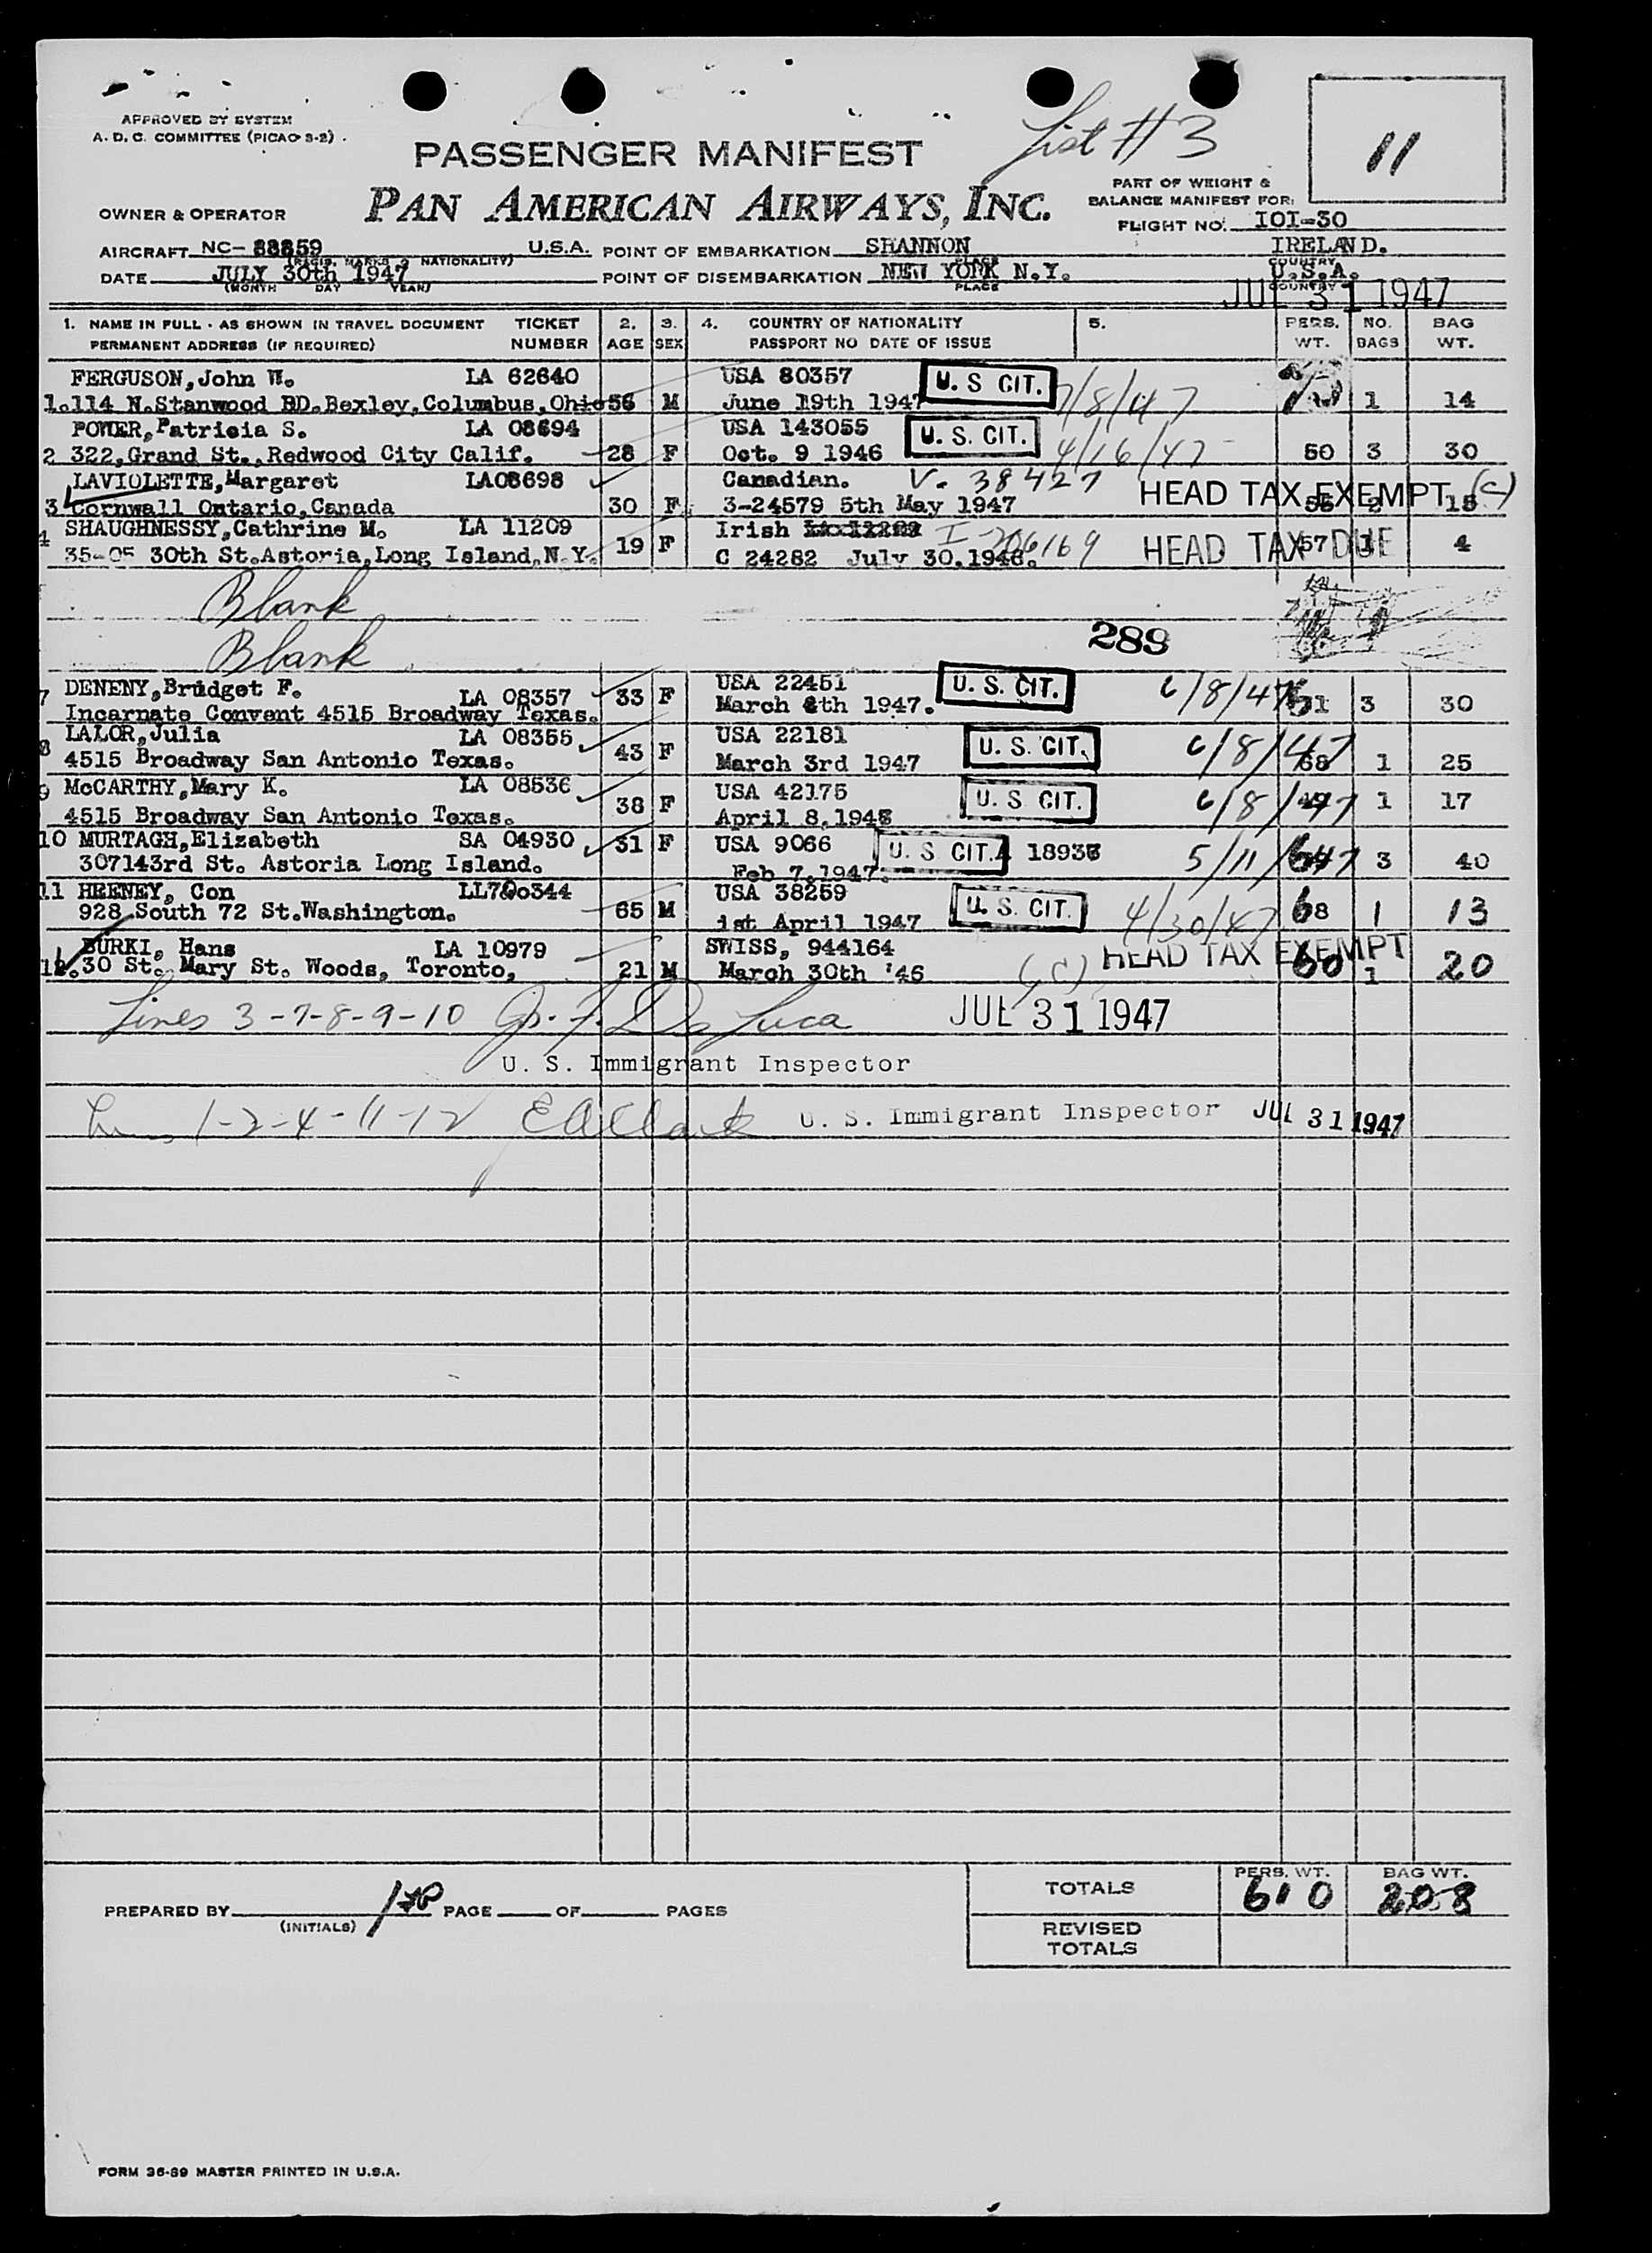 APPROVED BY SYSTEM
A. D. C. COMMITTEE (PICAO 3-2)
List # 3
11
PASSENGER MANIFEST
PAN AMERICAN AIRWAYS, INC.
PART OF WEIGHT &
BALANCE MANIFEST FOR:
OWNER & OPERATOR
FLIGHT NO. IOI-30
AIRCRAFT NC- 88859 U.S.A. POINT OF EMBARKATION SHANNON IRELAND.
(REGIS. MARKS & NATIONALITY) PLACE COUNTRY
DATE JULY 30th 1947 POINT OF DISEMBARKATION NEW YORK N.Y. U.S.A.
(MONTH DAY YEAR) PLACE COUNTRY
JUL 31 1947
1. NAME IN FULL - AS SHOWN IN TRAVEL DOCUMENT TICKET 2. 3. 4. COUNTRY OF NATIONALITY 5. PERS. NO. BAG
PERMANENT ADDRESS (IF REQUIRED) NUMBER AGE SEX PASSPORT NO DATE OF ISSUE WT. BAGS WT.
FERGUSON, John W. LA 62640 USA 80357 U. S CIT. 7/8/47
1. 114 N. Stanwood RD. Bexley, Columbus, Ohio 56 M June 19th 1947 1 14
POWER, Patricia S. LA 08694 USA 143055 U. S. CIT. 4/16/47
2 322, Grand St., Redwood City Calif. 28 F Oct. 9 1946 50 3 30
LAVIOLETTE, Margaret LA08698 Canadian. V- 38427 HEAD TAX EXEMPT (C)
3 Cornwall Ontario, Canada 30 F. 3-24579 5th May 1947 2 15
SHAUGHNESSY, Cathrine M. LA 11209 Irish I-206169 HEAD TAX DUE
4 35-05 30th St. Astoria, Long Island, N.Y. 19 F C 24282 July 30. 1946. 57 1 4
Blank
Blank
289
7 DENENY, Bridget F. LA 08357 33 F USA 22451 U. S. CIT. 6/8/47
Incarnate Convent 4515 Broadway Texas. March 8th 1947. 51 3 30
8 LALOR, Julia LA 08355 43 F USA 22181 U. S. CIT. 6/8/47
4515 Broadway San Antonio Texas. March 3rd 1947 68 1 25
9 McCARTHY, Mary K. LA 08536 38 F USA 42175 U. S CIT. 6/8/47
4515 Broadway San Antonio Texas. April 8, 1947 1 17
10 MURTAGH, Elizabeth SA 04930 31 F USA 9066 U. S CIT. 5/11/47
307143rd St. Astoria Long Island. Feb 7, 1947. 3 40
11 HEENEY, Con USA 38259 U. S. CIT. 4/30/47
928 South 72 St. Washington. 65 M 1st April 1947 68 1 13
BURKI, Hans LA 10979 SWISS, 944164 HEAD TAX EXEMPT
12. 30 St. Mary St. Woods, Toronto, 21 M March 30th '46 (C) 60 1 20
Lines 3-7-8-9-10 De Luca JUL 31 1947
U. S. Immigrant Inspector
1-2-4-11-12 U. S. Immigrant Inspector JUL 31 1947
TOTALS PERS. WT. 610 BAG WT. 208
PREPARED BY PAGE OF PAGES
(INITIALS)
REVISED
TOTALS
FORM 36-89 MASTER PRINTED IN U.S.A.